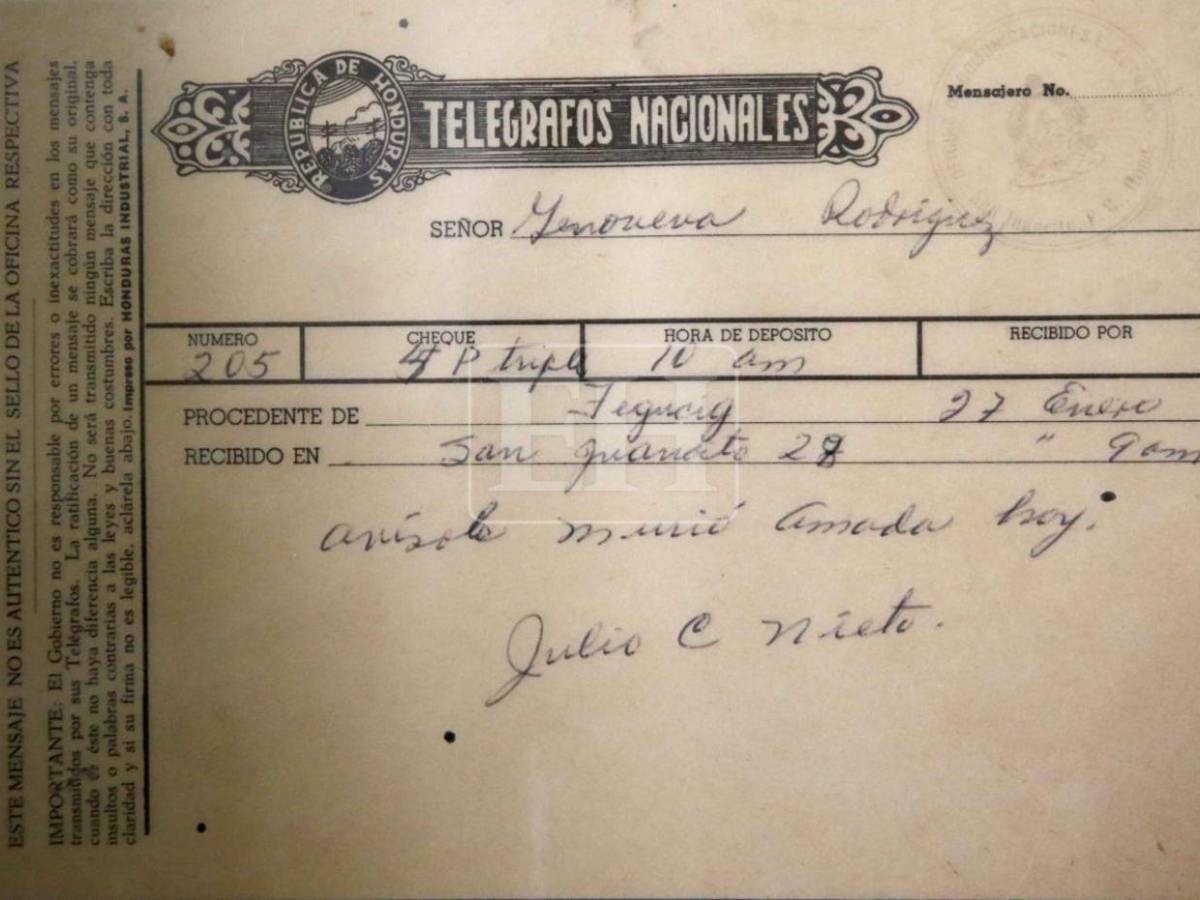 ESTE MENSAJE NO ES AUTENTICO SIN EL SELLO DE LA OFICINA RESPECTIVA
IMPORTANTE: El Gobierno no es responsable por errores o inexactitudes en los mensajes
transmitidos por sus Telégrafos. La ratificación de un mensaje se cobrará como su original,
cuando en éste no haya diferencia alguna. No será transmitido ningún mensaje que contenga
insultos o palabras contrarias a las leyes y buenas costumbres. Escriba la dirección con toda
claridad y si su firma no es legible, aclárela abajo. Impreso por HONDURAS INDUSTRIAL, S. A.
REPUBLICA DE HONDURAS
TELEGRAFOS NACIONALES
Mensajero No.
SEÑOR Genoveva Rodriguez
NUMERO CHEQUE HORA DE DEPOSITO RECIBIDO POR
205 P triple 10 am
PROCEDENTE DE Tegucig 27 Enero
RECIBIDO EN San Juancito 28 " 9 am
avísole murió Amada hoy.
Julio C Nieto.
EH